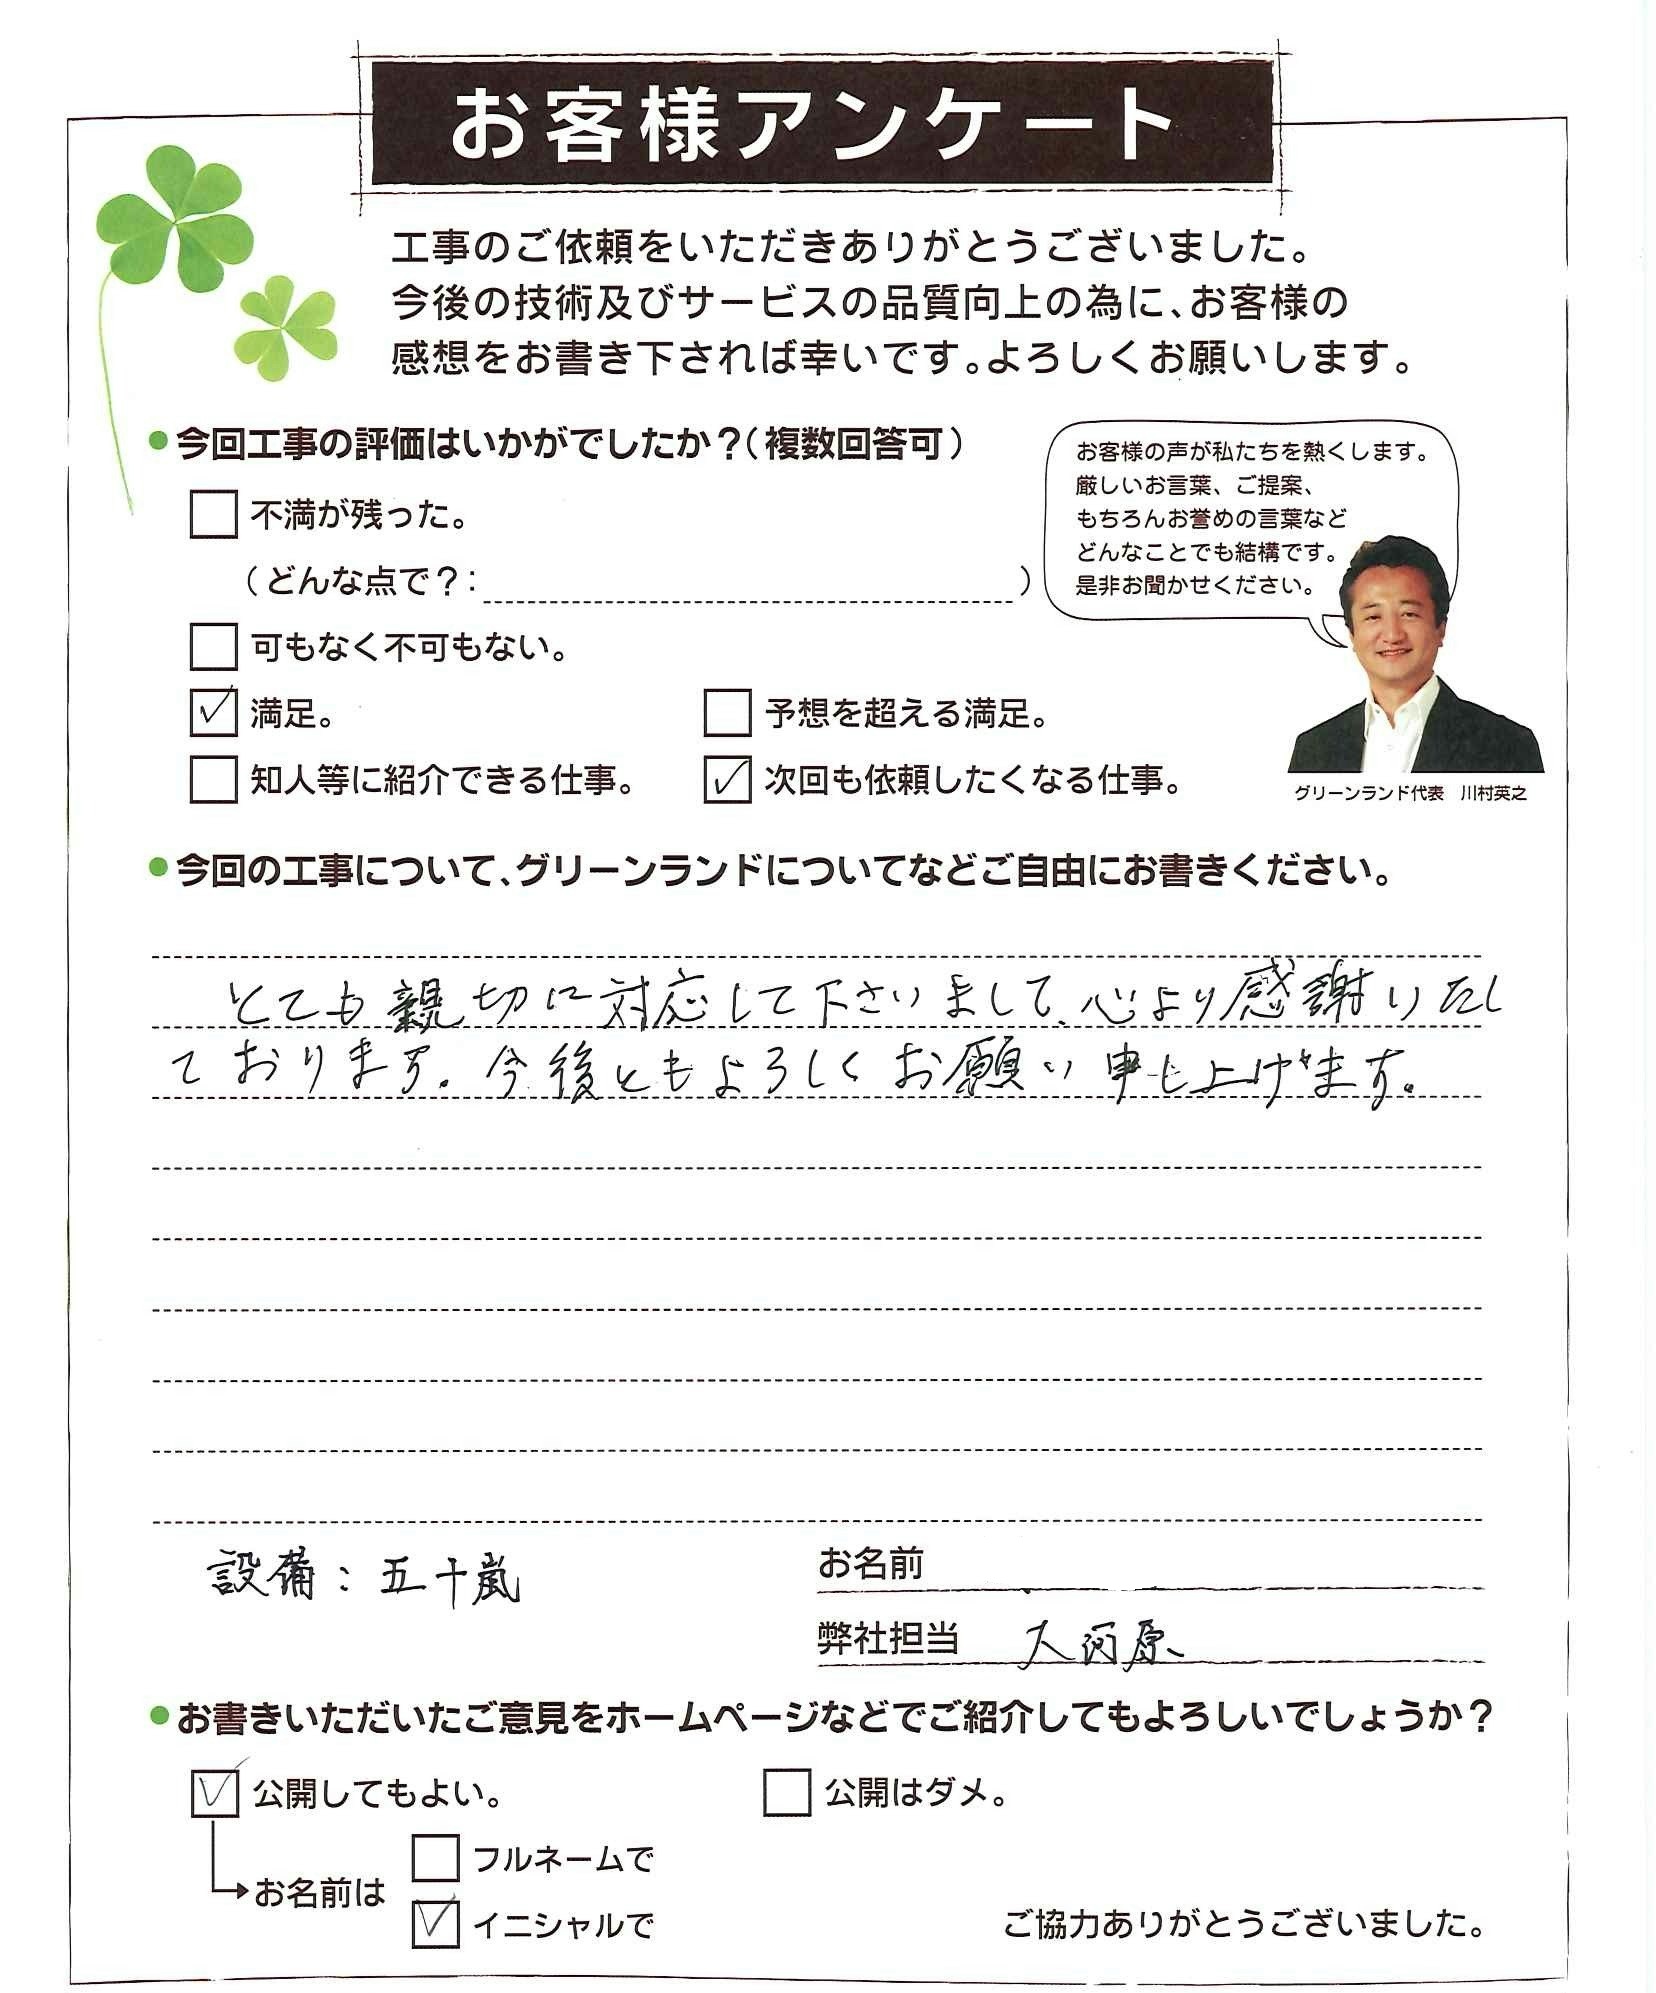 お客様アンケート
工事のご依頼をいただきありがとうございました。
今後の技術及びサービスの品質向上の為に、お客様の
感想をお書き下されば幸いです。よろしくお願いします。
●今回工事の評価はいかがでしたか？(複数回答可)
不満が残った。
(どんな点で？: )
可もなく不可もない。
満足。 予想を超える満足。
知人等に紹介できる仕事。 次回も依頼したくなる仕事。
お客様の声が私たちを熱くします。
厳しいお言葉、ご提案、
もちろんお誉めの言葉など
どんなことでも結構です。
是非お聞かせください。
グリーンランド代表　川村英之
●今回の工事について、グリーンランドについてなどご自由にお書きください。
とても親切に対応して下さいまして、心より感謝いたし
ております。今後ともよろしくお願い申し上げます。
設備：五十嵐
お名前
弊社担当　大河原
●お書きいただいたご意見をホームページなどでご紹介してもよろしいでしょうか？
公開してもよい。 公開はダメ。
お名前は
フルネームで
イニシャルで
ご協力ありがとうございました。